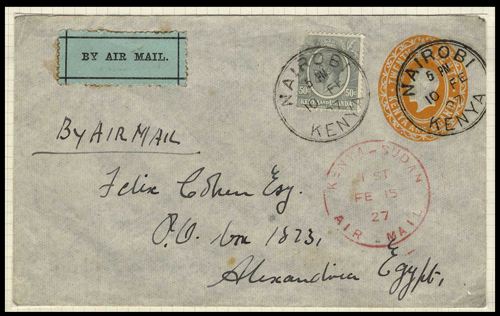 BY AIR MAIL.
NAIROBI
10 FE
KENYA
50c 50c
KENYA AND UGANDA
NAIROBI
10 FE
KENYA
By AIR MAIL
KENYA-SUDAN
1 ST
FE 15
27
AIR - MAIL
Felix Cohen Esq.
P.O. box 1823,
Alexandria Egypt,